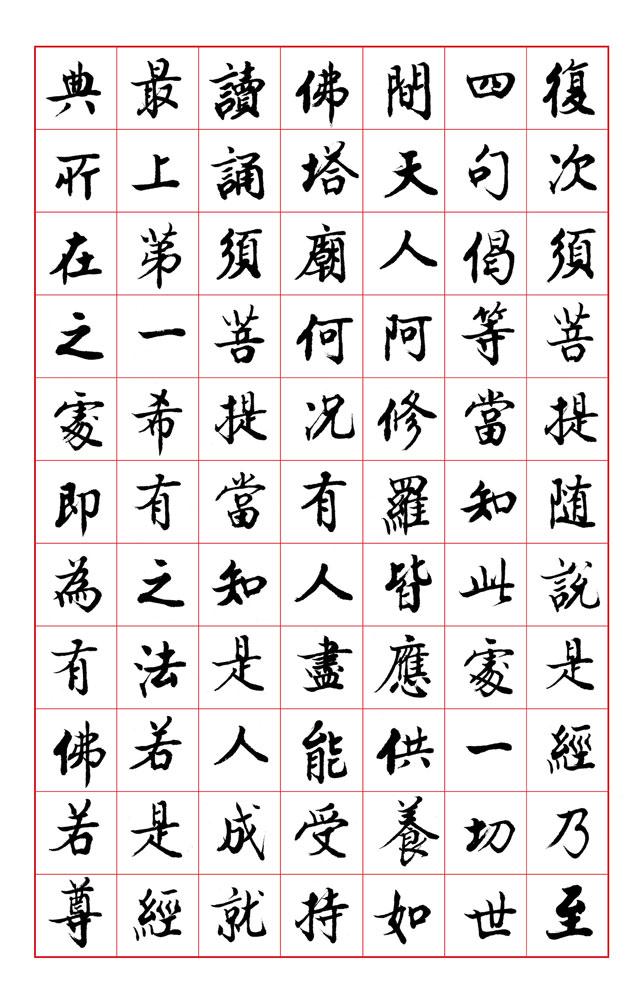 復次須菩提随說是經乃至
四句偈等當知此處一切世
間天人阿修羅皆應供養如
佛塔廟何況有人盡能受持
讀誦須菩提當知是人成就
最上第一希有之法若是經
典所在之處即為有佛若尊